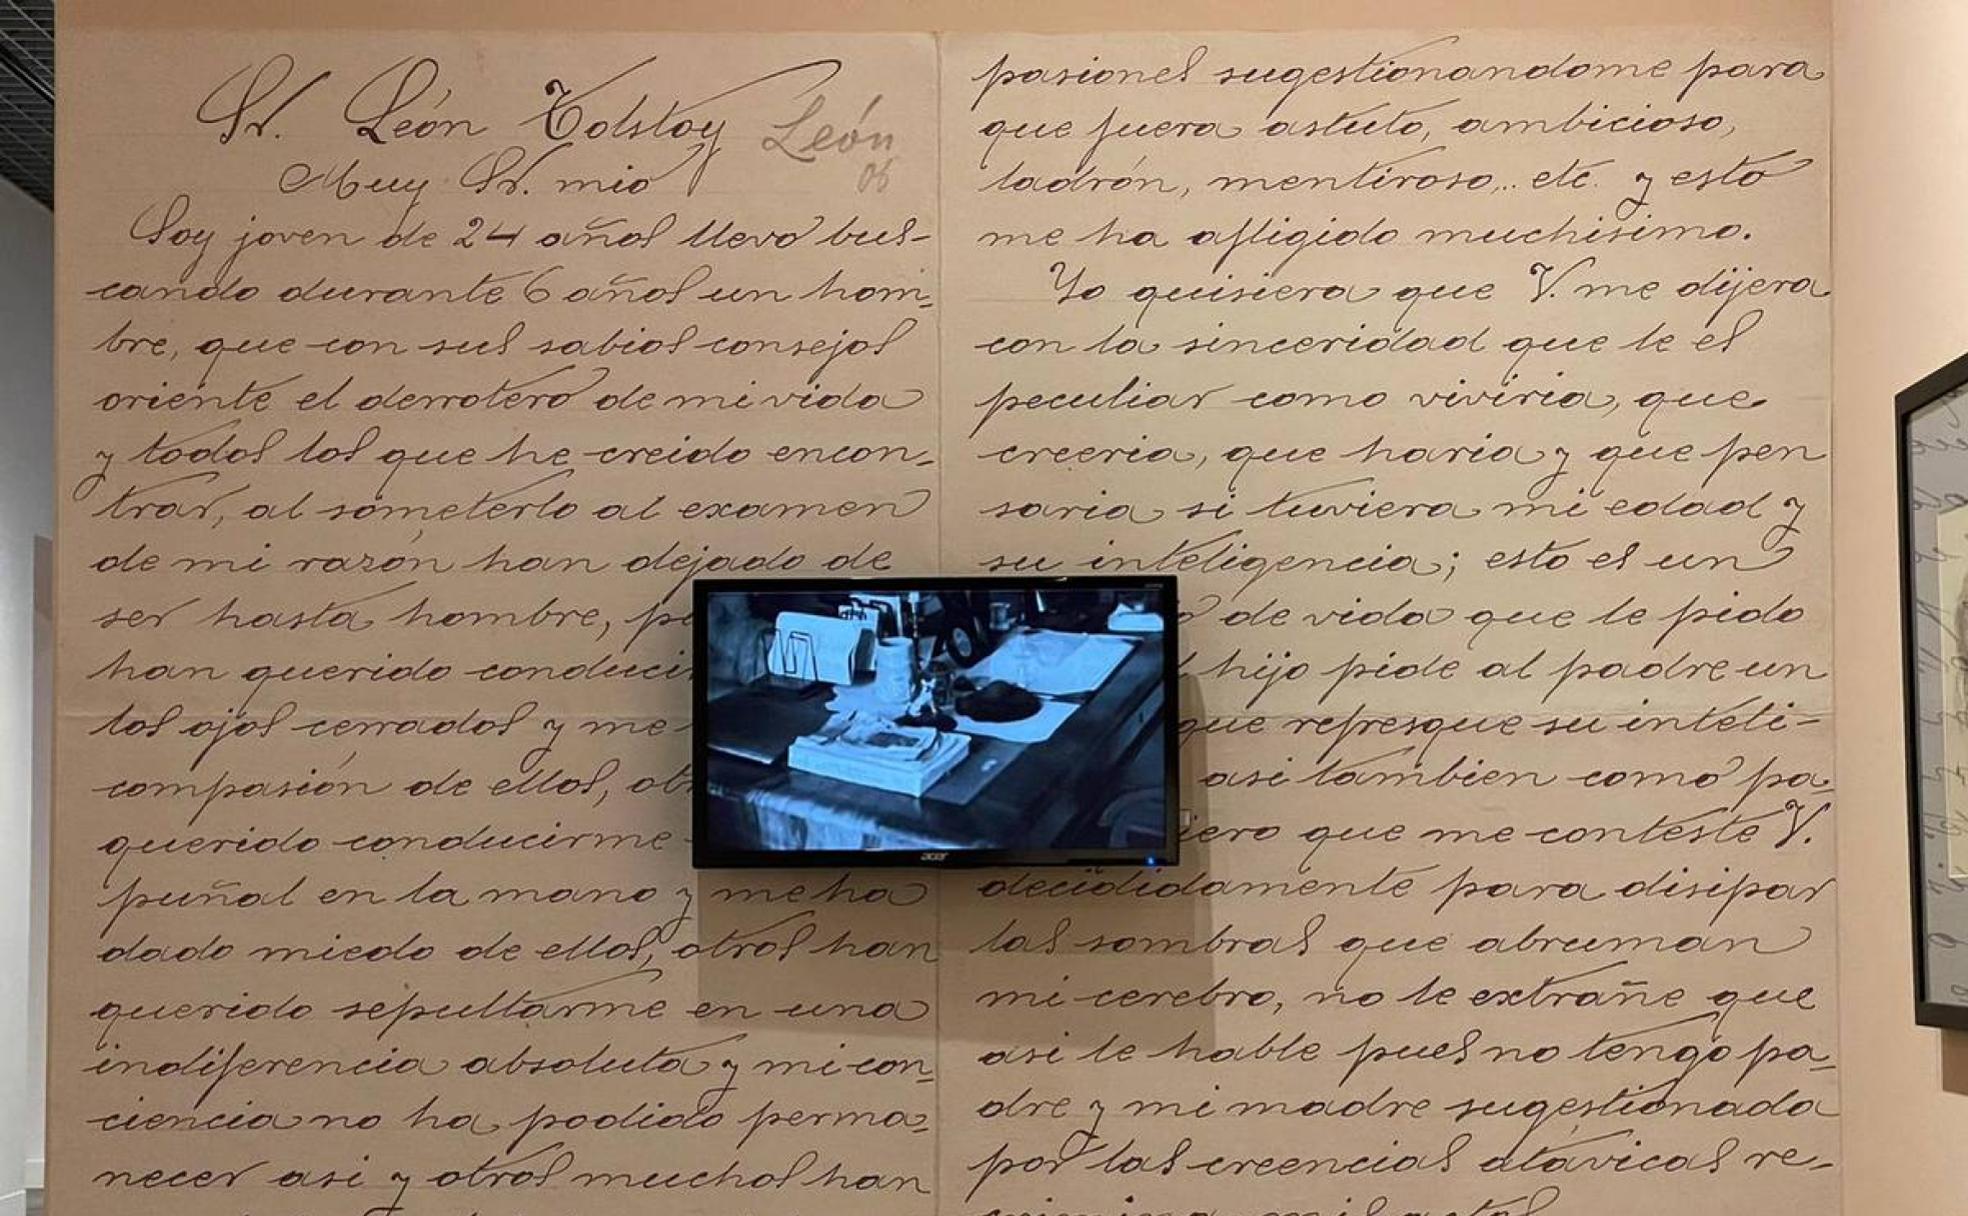 Sr. León Tolstoy León
06
Muy Sr. mio
Soy joven de 24 años llevo bus-
cando durante 6 años un hom-
bre, que con sus sabios consejos
oriente el derrotero de mi vida
y todos los que he creido encon-
trar, al someterlo al examen
de mi razón han dejado de
ser hasta hombre,
han querido
los ojos cerrados y me
compasión de ellos,
querido conducirme
puñal en la mano y me ha
dado miedo de ellos, otros han
querido sepultarme en una
indiferencia absoluta y mi con-
ciencia no ha podido perma-
necer asi y otros muchos han
pasiones sugestionandome para
que fuera astuto, ambicioso,
ladrón, mentiroso,.. etc. y esto
me ha afligido muchisimo.
Yo quisiera que V. me dijera
con la sinceridad que le es
peculiar como viviria, que
creeria, que haria y que pen
saria si tuviera mi edad y
su inteligencia; esto es un
de vida que le pido
hijo pide al padre un
que refresque su inteli-
asi tambien como pa-
que me conteste V.
decididamente para disipar
las sombras que abruman
mi cerebro, no le extrañe que
asi le hable pues no tengo pa-
dre y mi madre sugestionada
por las creencias atávicas re-
acer